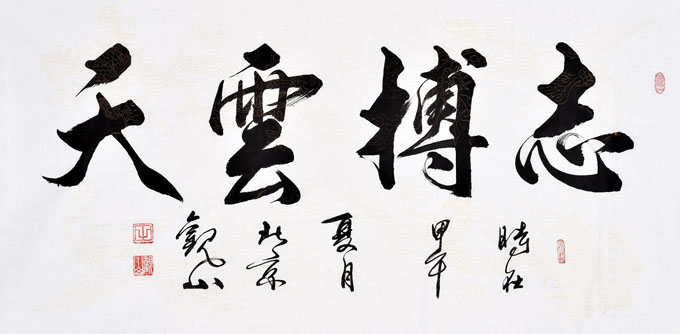 志搏雲天
時在
甲午
夏月
北京
觀山